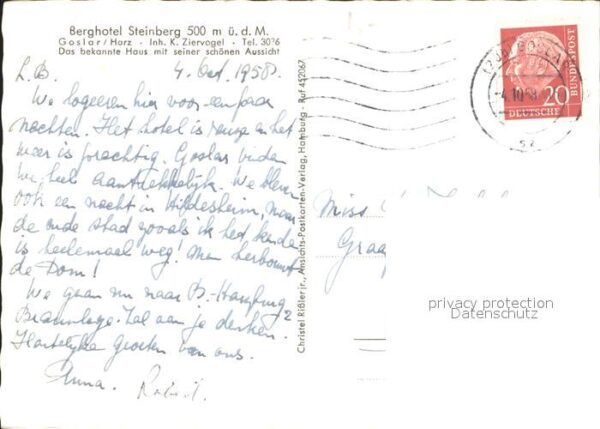 Berghotel Steinberg 500 m ü. d. M.
Goslar/Harz · Inh. K. Ziervogel · Tel. 3076
Das bekannte Haus mit seiner schönen Aussicht
L.B. 4. Oct. 1958.
We logeeren hier voor een paar
nachten. Het hotel is en het
weer is prachtig. Goslar vinden
we heel aantrekkelijk. We bleven
ook een nacht in Hildesheim, maar
de oude stad zooals ik het kende
is heelemaal weg! Men herbouwt
de Dom!
We gaan nu naar B. Harzburg &
Braunlage. Zal aan je denken.
Hartelijke groeten van ons.
Anna. Robert.
Christel Rißler jr., Ansichts-Postkarten-Verlag, Hamburg · Ruf 452067
GOSLAR
4.10.58
20
DEUTSCHE
BUNDESPOST
Miss
privacy protection
Datenschutz